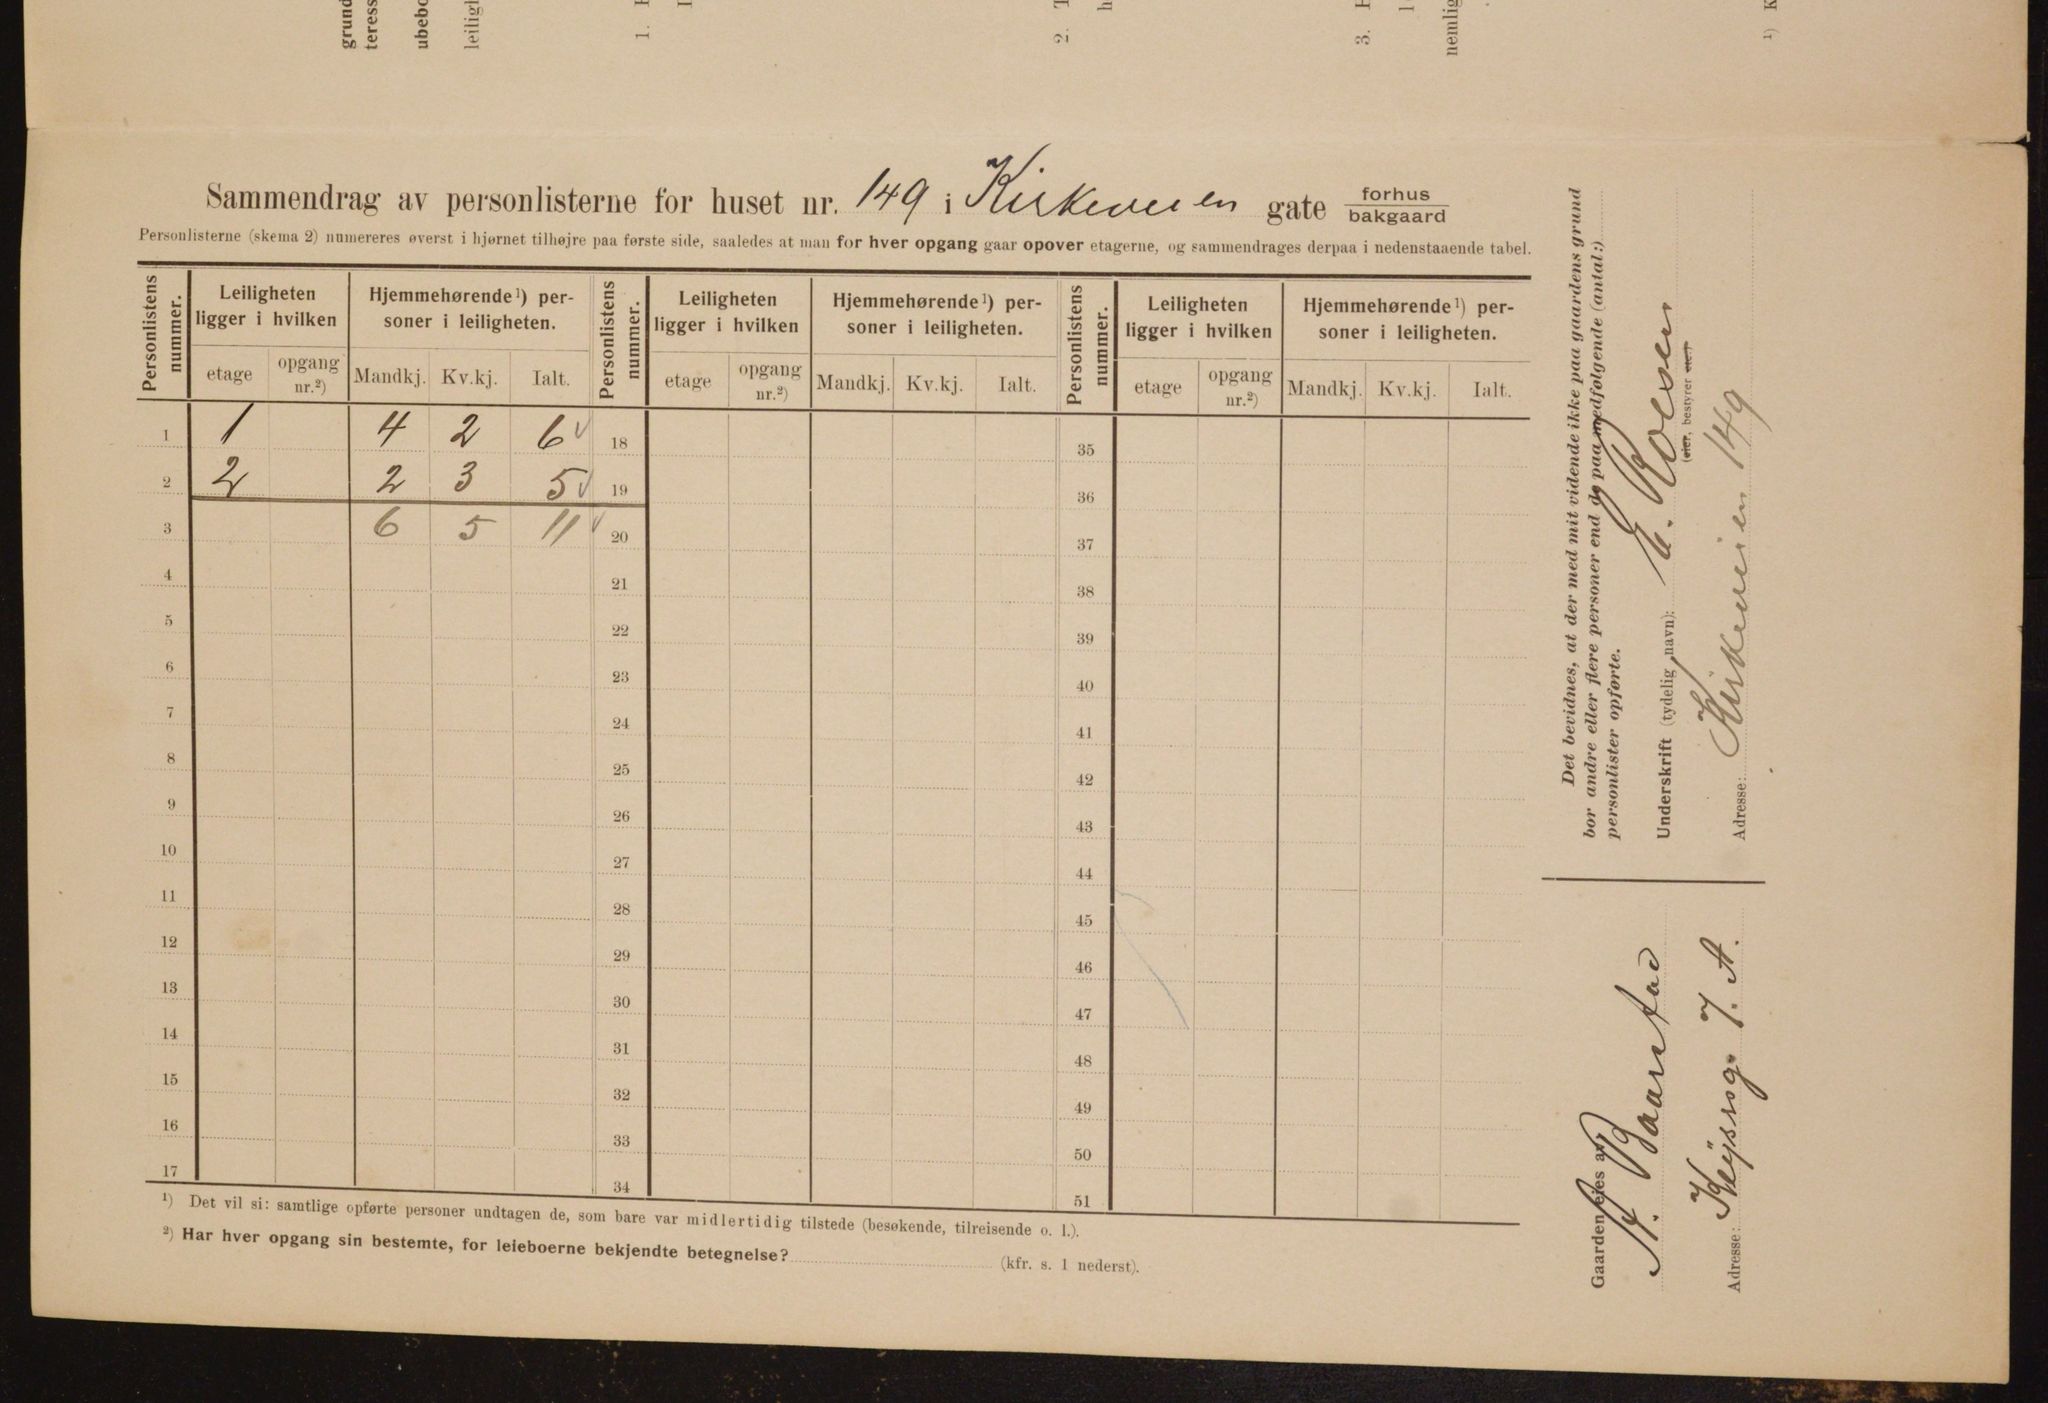 grund
teress
ubebo
leiligh
1.
2.
3.
nemlig
1) K
Sammendrag av personlisterne for huset nr. 149 i Kirkeveien gate forhus
bakgaard
Personlisterne (skema 2) numereres øverst i hjørnet tilhøjre paa første side, saaledes at man for hver opgang gaar opover etagerne, og sammendrages derpaa i nedenstaaende tabel.
Personlistens nummer. Leiligheten ligger i hvilken Hjemmehørende1) per-soner i leiligheten. Personlistens nummer. Leiligheten ligger i hvilken Hjemmehørende1) per-soner i leiligheten. Personlistens nummer. Leiligheten ligger i hvilken Hjemmehørende1) per-soner i leiligheten.
etage opgang nr.2) Mandkj. Kv.kj. Ialt. etage opgang nr.2) Mandkj. Kv.kj. Ialt. etage opgang nr.2) Mandkj. Kv.kj. Ialt.
1 1 4 2 6 ✓ 18 35
2 2 2 3 5 ✓ 19 36
3 6 5 11 ✓ 20 37
4 21 38
5 22 39
6 23 40
7 24 41
8 25 42
9 26 43
10 27 44
11 28 45
12 29 46
13 30 47
14 31 48
15 32 49
16 33 50
17 34 51
1) Det vil si: samtlige opførte personer undtagen de, som bare var midlertidig tilstede (besøkende, tilreisende o. l.).
2) Har hver opgang sin bestemte, for leieboerne bekjendte betegnelse? (kfr. s. 1 nederst).
Det bevidnes, at der med mit vidende ikke paa gaardens grund
bor andre eller flere personer end de paa medfølgende (antal:)
personlister opførte.
Underskrift (tydelig navn): E. Roesen
(eier, bestyrer etc.)
Adresse: Kirkeveien 149
Gaarden eies av: A. Baarstad
Adresse: Keysersg. 7. A.